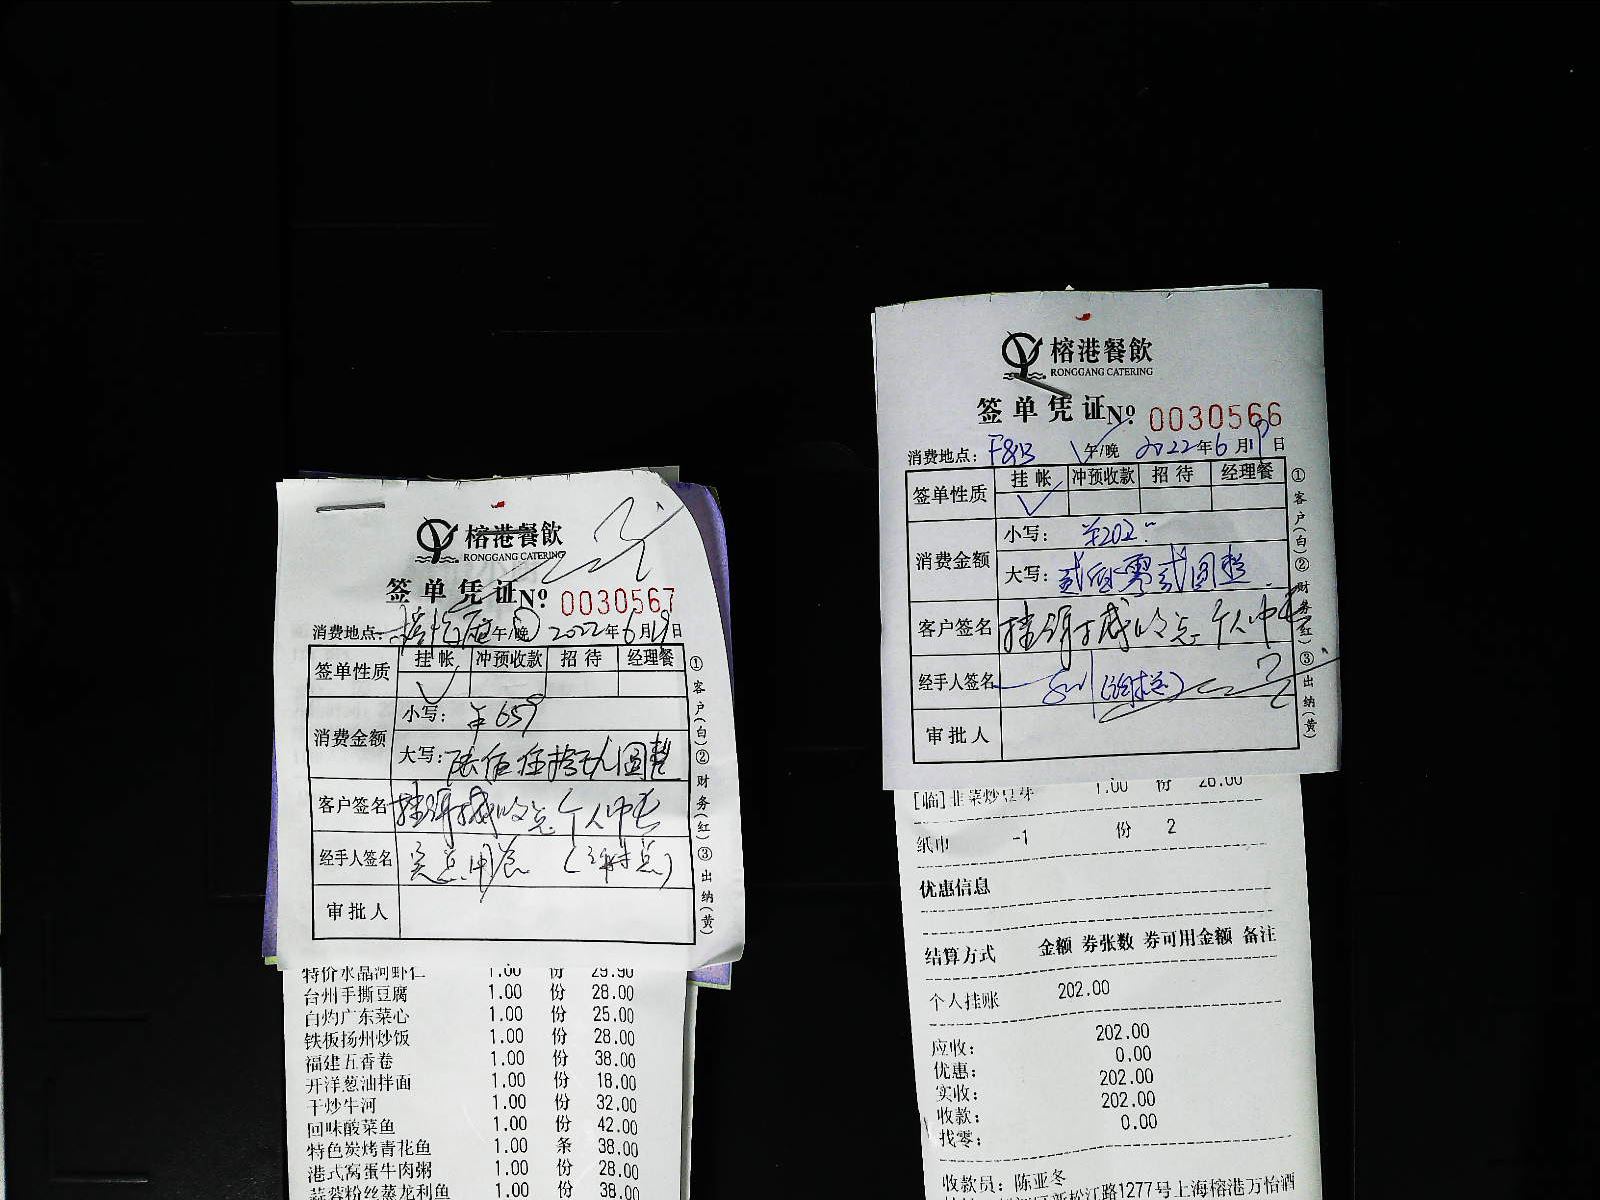 榕港餐飲
RONGGANG CATERING
签单凭证 No. 0030567
消费地点: 榕怡庭 午/晚 2022年6月19日
签单性质 挂帐 冲预收款 招待 经理餐
消费金额 小写: ¥659
大写: 陆佰伍拾玖圆整
客户签名
经手人签名
审批人
①客户(白)②财务(红)③出纳(黄)
特价水晶河虾仁 1.00 份 29.90
台州手撕豆腐 1.00 份 28.00
白灼广东菜心 1.00 份 25.00
铁板扬州炒饭 1.00 份 28.00
福建五香卷 1.00 份 38.00
开洋葱油拌面 1.00 份 18.00
干炒牛河 1.00 份 32.00
回味酸菜鱼 1.00 份 42.00
特色炭烤青花鱼 1.00 条 38.00
港式窝蛋牛肉粥 1.00 份 28.00
蒜蓉粉丝蒸龙利鱼 1.00 份 38.00
榕港餐飲
RONGGANG CATERING
签单凭证 No. 0030566
消费地点: F&B 午/晚 2022年6月19日
签单性质 挂帐 冲预收款 招待 经理餐
消费金额 小写: ¥202
大写: 贰佰零贰圆整
客户签名
经手人签名
审批人
①客户(白)②财务(红)③出纳(黄)
[临]韭菜炒豆芽 1.00 份 26.00
纸巾 -1 份 2
优惠信息
结算方式 金额 券张数 券可用金额 备注
个人挂账 202.00
应收: 202.00
优惠: 0.00
实收: 202.00
收款: 202.00
找零: 0.00
收款员: 陈亚冬
新松江路1277号上海榕港万怡酒